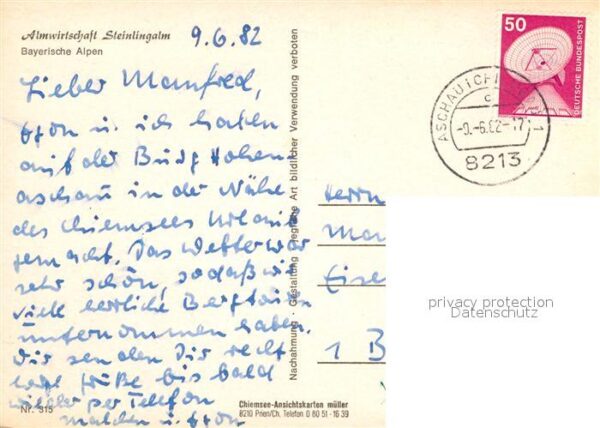 Almwirtschaft Steinlingalm
Bayerische Alpen
9.6.82
Lieber Manfred,
u. ich haben
auf der Burg Hohen
aschau in der Nähe
des Chiemsees Urlaub
gemacht. Das Wetter war
sehr schön, sodaß wir
viele herrliche Bergtouren
unternommen haben.
Wir senden Dir recht
Grüße bis bald
wieder per Telefon
u.
Nr. 315
Nachahmung - Gestaltung - jegliche Art bildlicher Verwendung verboten
Chiemsee-Ansichtskarten müller
8210 Prien/Ch. Telefon 0 80 51 - 16 39
50
DEUTSCHE BUNDESPOST
ASCHAU I CHIEMGAU 1
c
-9.-6.82-17
8213
Herrn
Man
Eise
1 B
privacy protection
Datenschutz